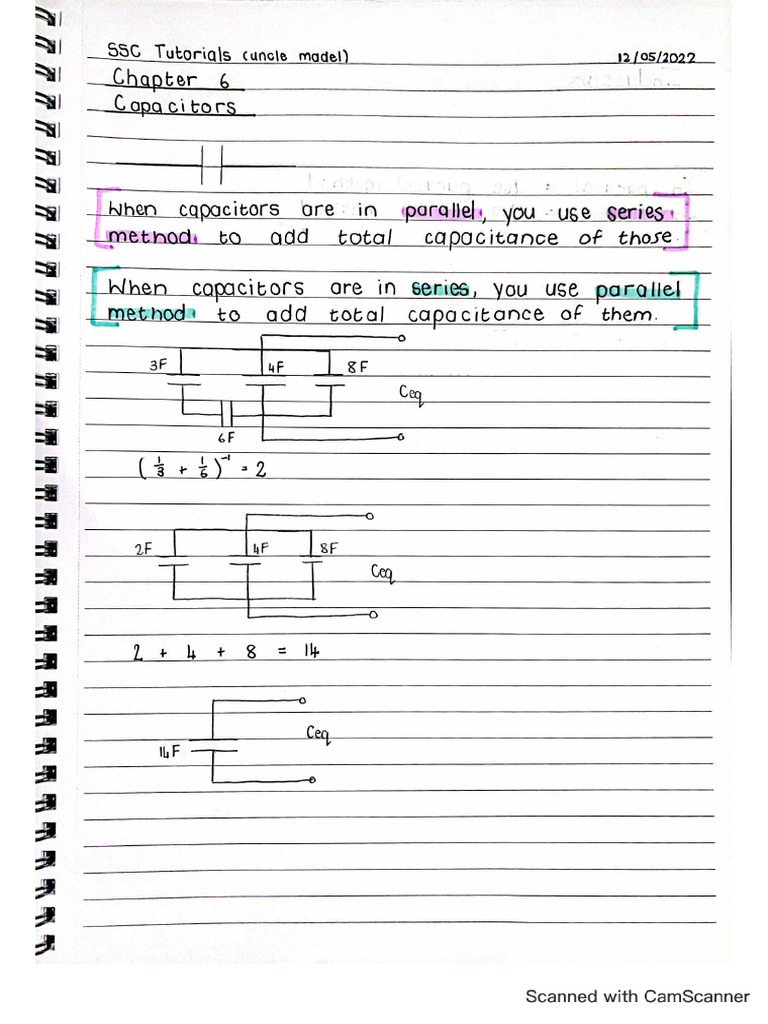 SSC Tutorials (uncle madel)
12/05/2022
Chapter 6
Capacitors
When capacitors are in parallel, you use series
method to add total capacitance of those.
When capacitors are in series, you use parallel
method to add total capacitance of them.
3F 4F 8F
Ceq
6F
(1/3 + 1/6)⁻¹ = 2
2F 4F 8F
Ceq
2 + 4 + 8 = 14
Ceq
14F
Scanned with CamScanner